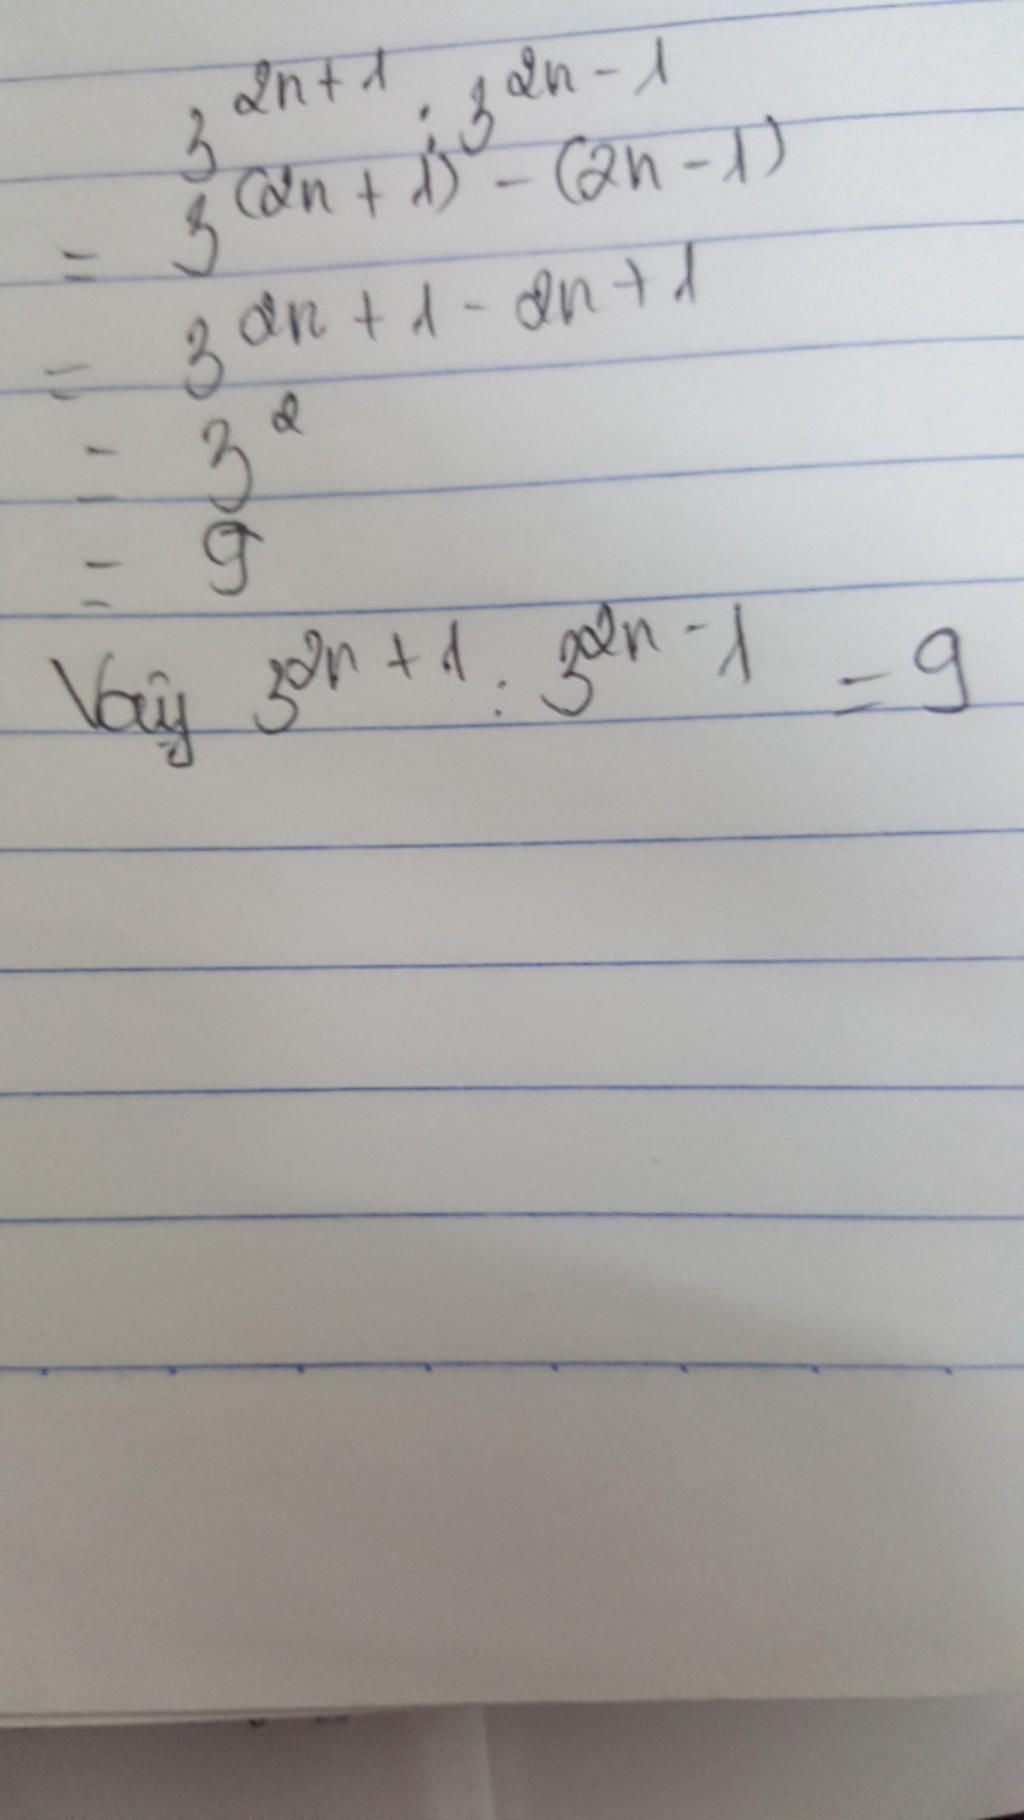 3^{2n+1} : 3^{2n-1}
= 3^{(2n+1)-(2n-1)}
= 3^{2n+1-2n+1}
= 3^2
= 9
Vậy 3^{2n+1} : 3^{2n-1} = 9